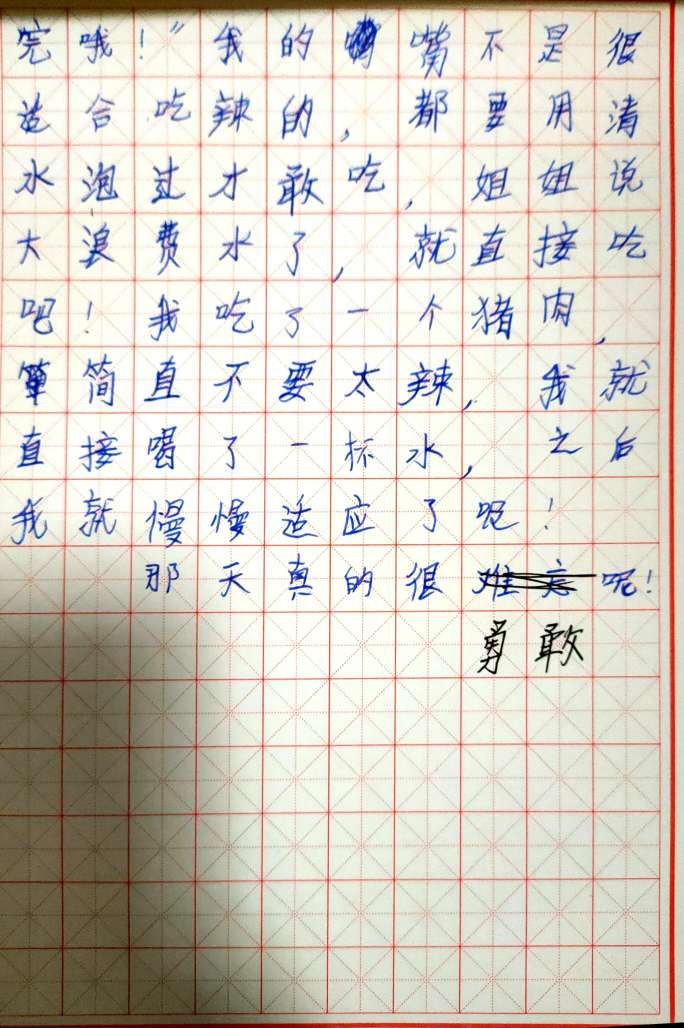 完哦！”我的嘴不是很
适合吃辣的，都要用清
水泡过才敢吃，姐姐说
大浪费水了，就直接吃
吧！我吃了一个猪肉，
简直不要太辣，我就
直接喝了一杯水，之后
我就慢慢适应了呢！
那天真的很难忘呢！
勇敢